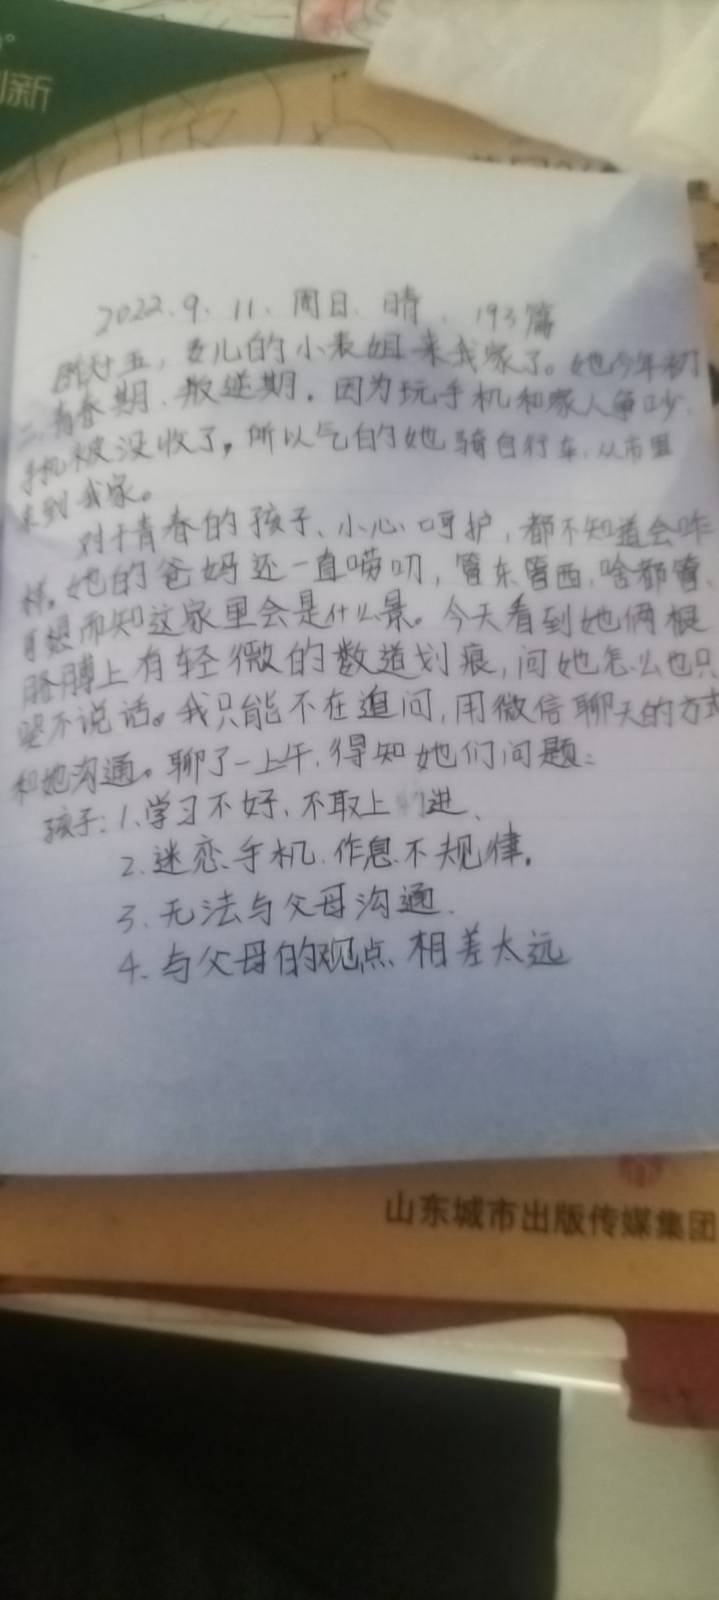 创新
2022.9.11.周日.晴.193篇
昨天十五,女儿的小表姐来我家了。她今年初
二.青春期.叛逆期.因为玩手机和家人争吵.
手机被没收了,所以气的她骑自行车.从市里
来到我家。
对于青春的孩子、小心呵护,都不知道会咋
样.她的爸妈还一直唠叨,管东管西.啥都管.
可想而知这家里会是什么景。今天看到她俩根
胳膊上有轻微的数道划痕,问她怎么也只
哭不说话。我只能不在追问,用微信聊天的方式
和她沟通。聊了一上午.得知她们问题:
孩子:1.学习不好、不取上进.
2.迷恋手机.作息不规律.
3.无法与父母沟通.
4.与父母的观点.相差太远
山东城市出版传媒集团